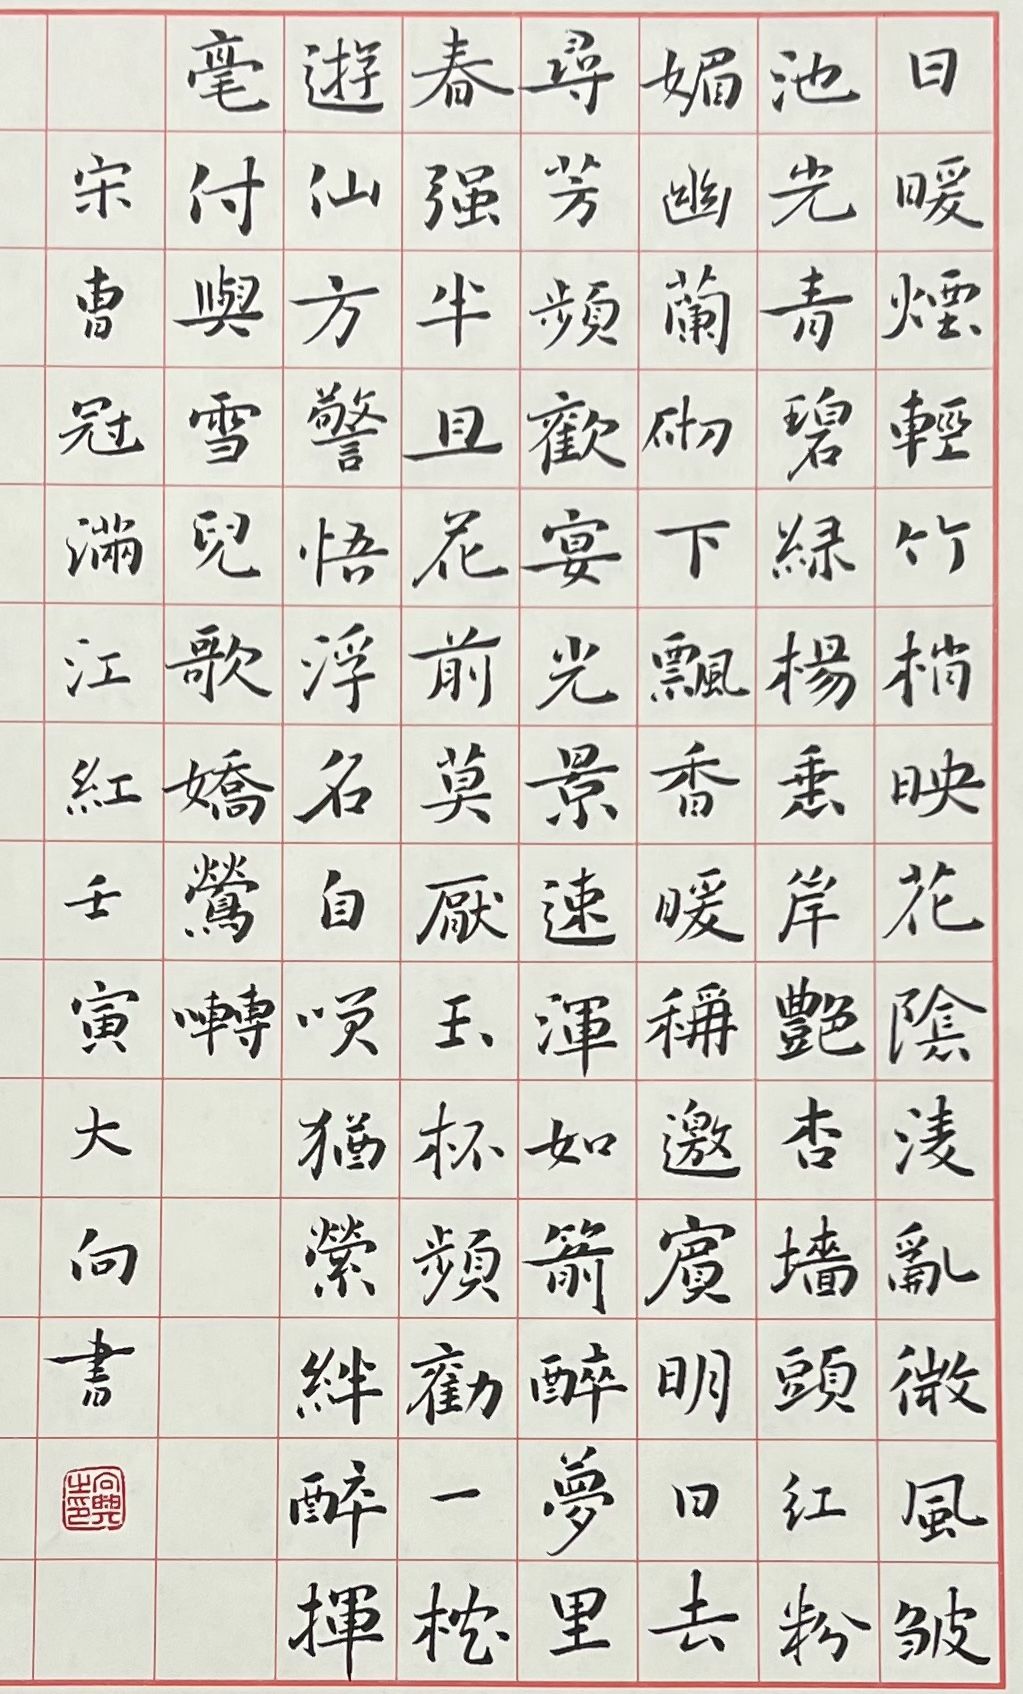 日暖煙輕竹梢映花陰凌亂微風皱
池光青碧綠楊垂岸艷杏墻頭红粉
媚幽蘭砌下飄香暖稱邀賓明日去
尋芳頻歡宴光景速渾如箭醉夢里
春强半且花前莫厭玉杯頻勸一枕
遊仙方警悟浮名自嘆猶縈絆醉揮
毫付與雪兒歌嬌鶯囀
宋曹冠滿江紅壬寅大向書